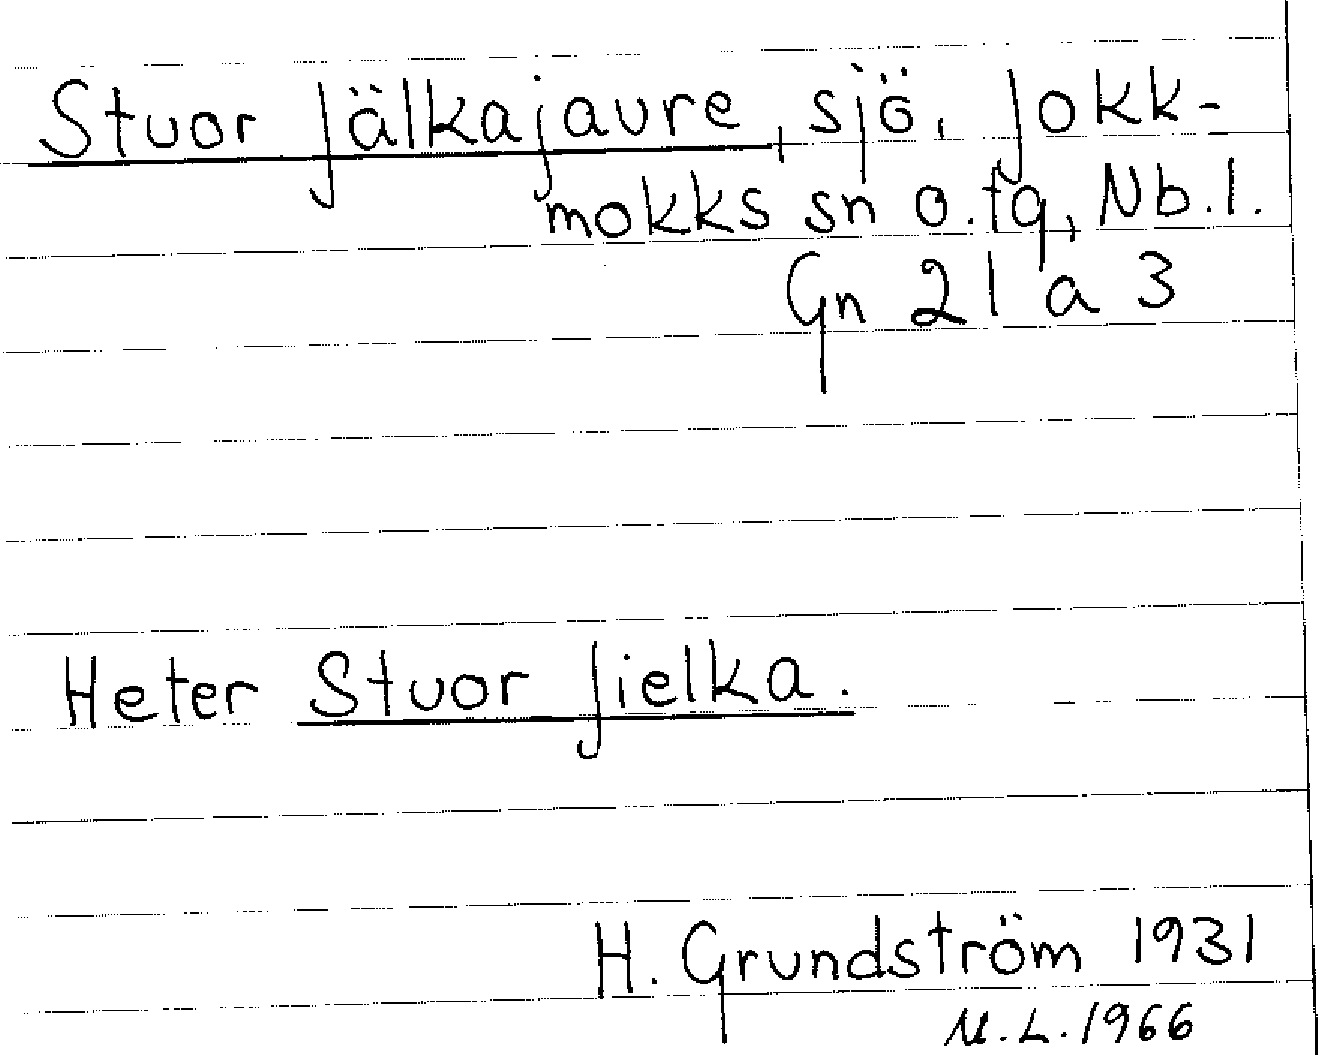 Stuor Jälkajaure, sjö, Jokk-
mokks sn o. tg, Nb. l.
Gn 21 a 3
Heter Stuor Jielka.
H. Grundström 1931
M. L. 1966